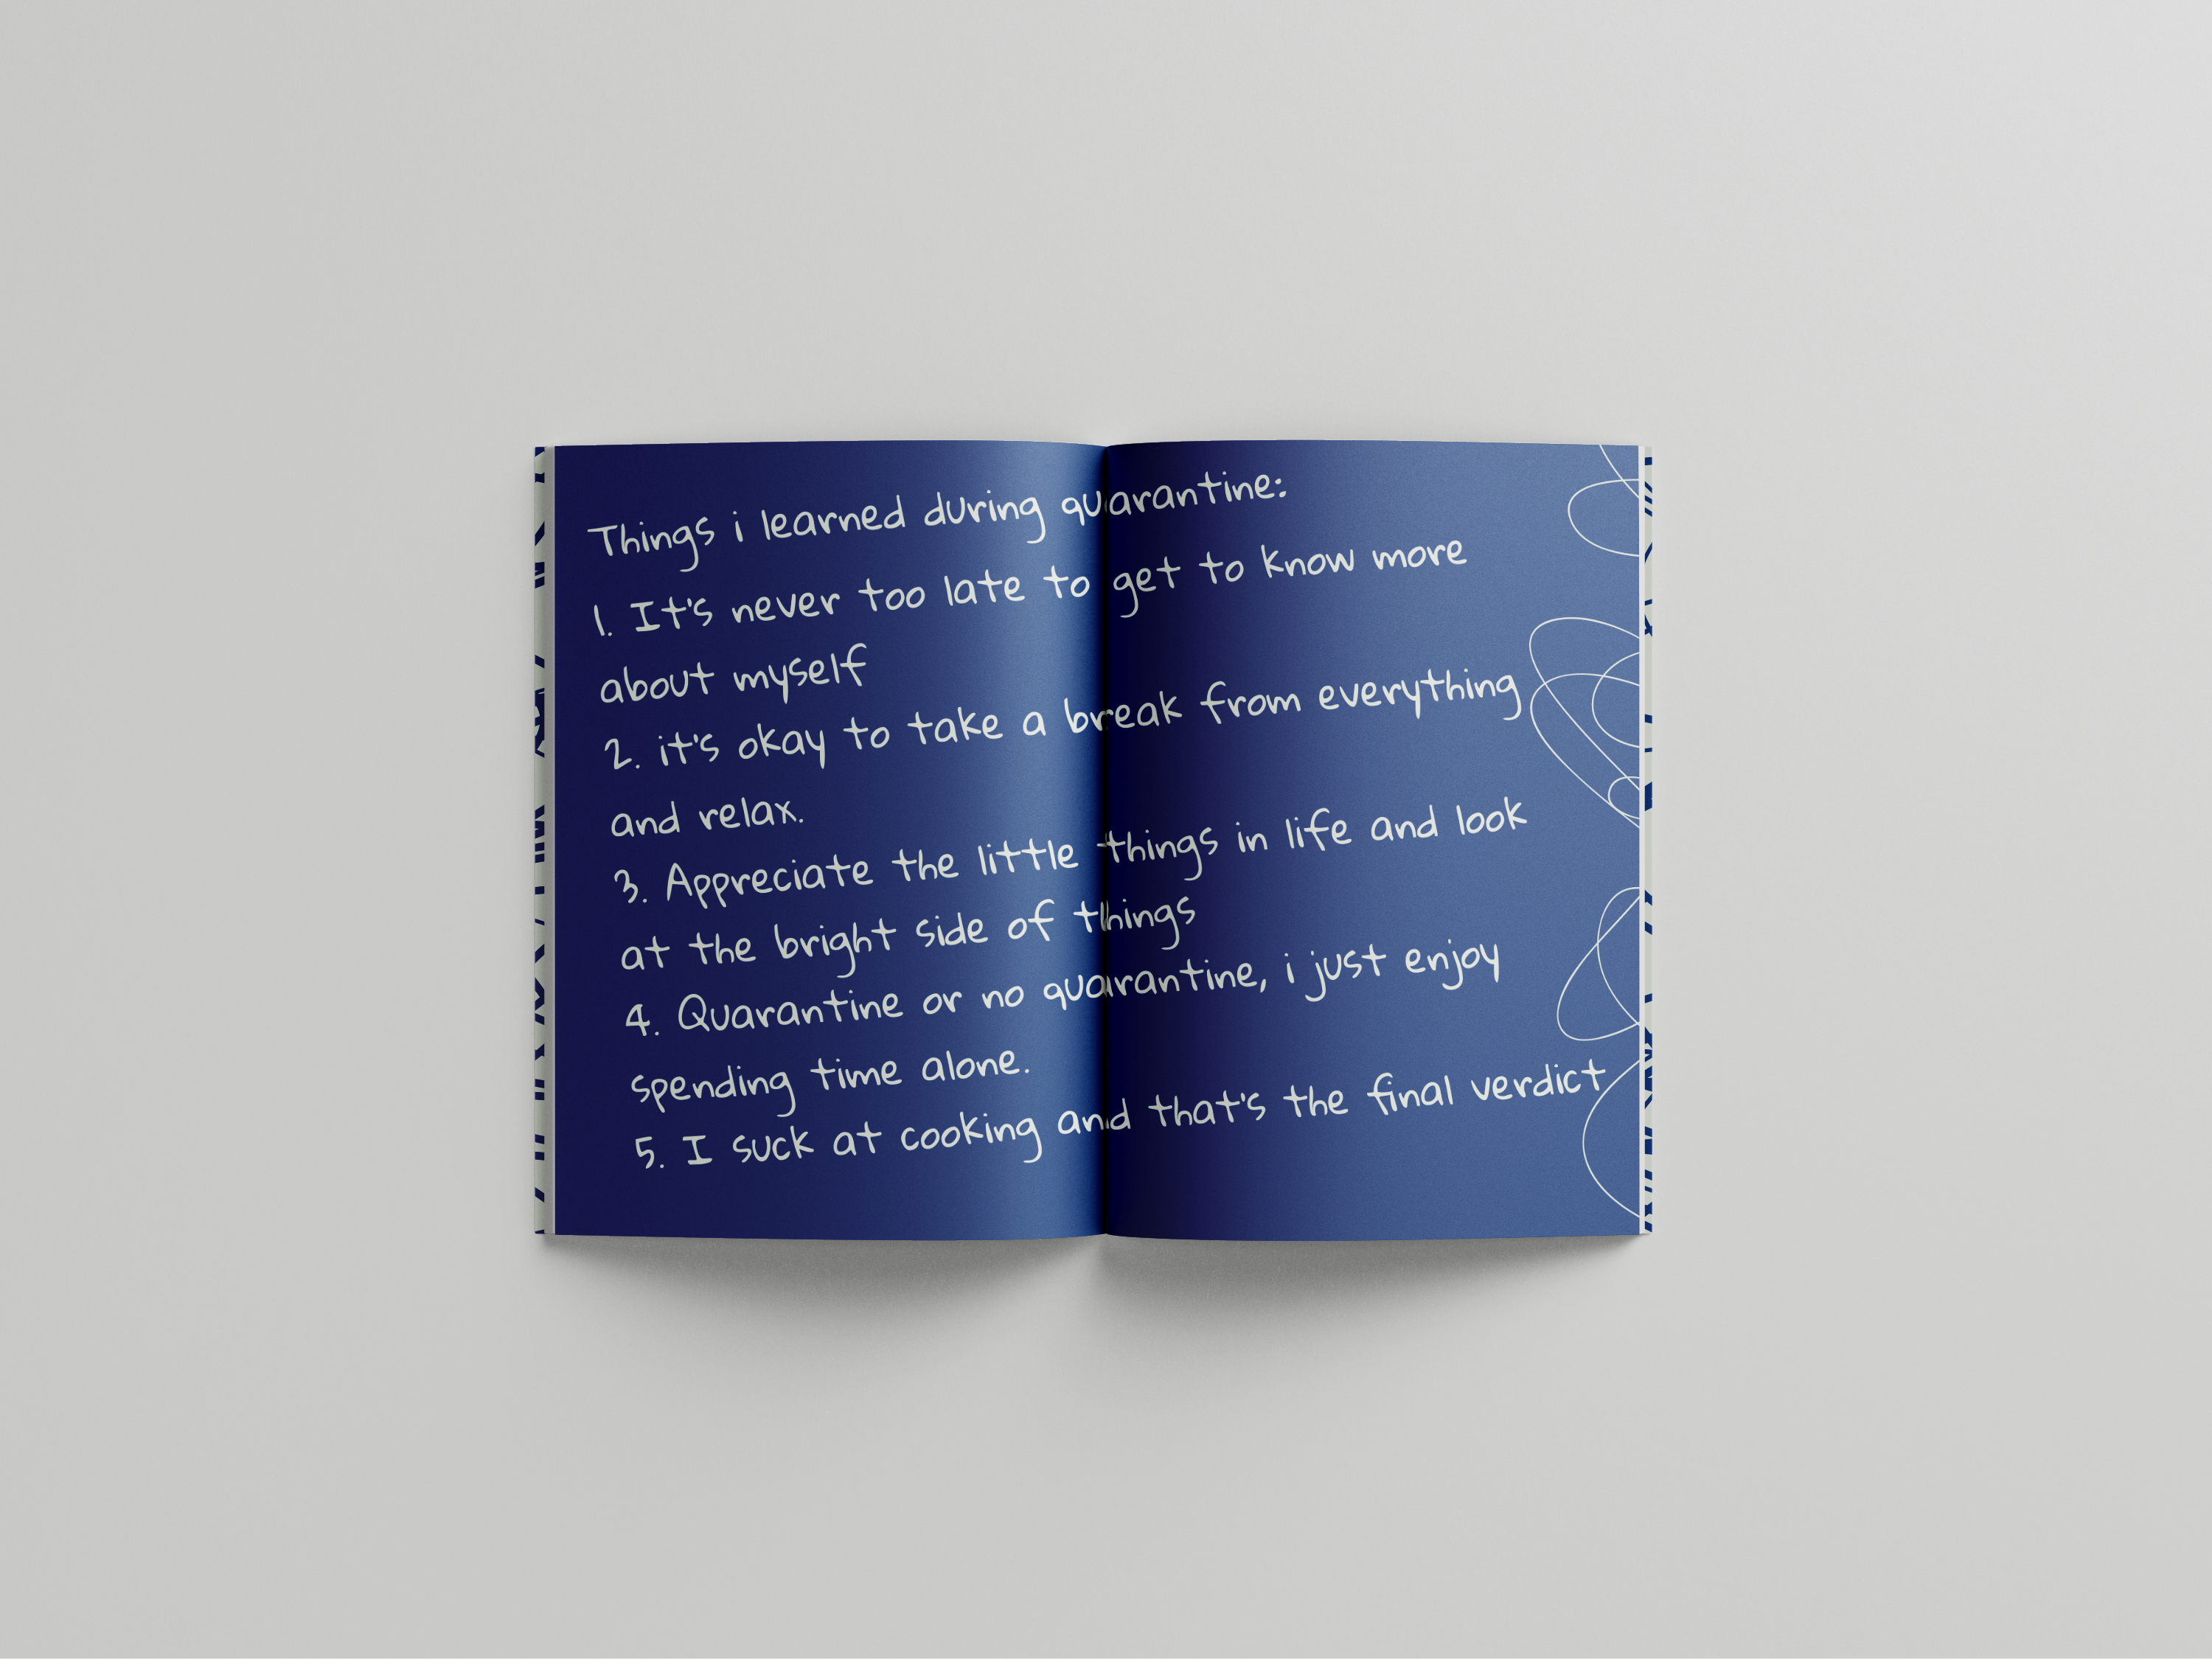 Things i learned during quarantine:
1. It's never too late to get to know more
about myself
2. it's okay to take a break from everything
and relax.
3. Appreciate the little things in life and look
at the bright side of things
4. Quarantine or no quarantine, i just enjoy
spending time alone.
5. I suck at cooking and that's the final verdict